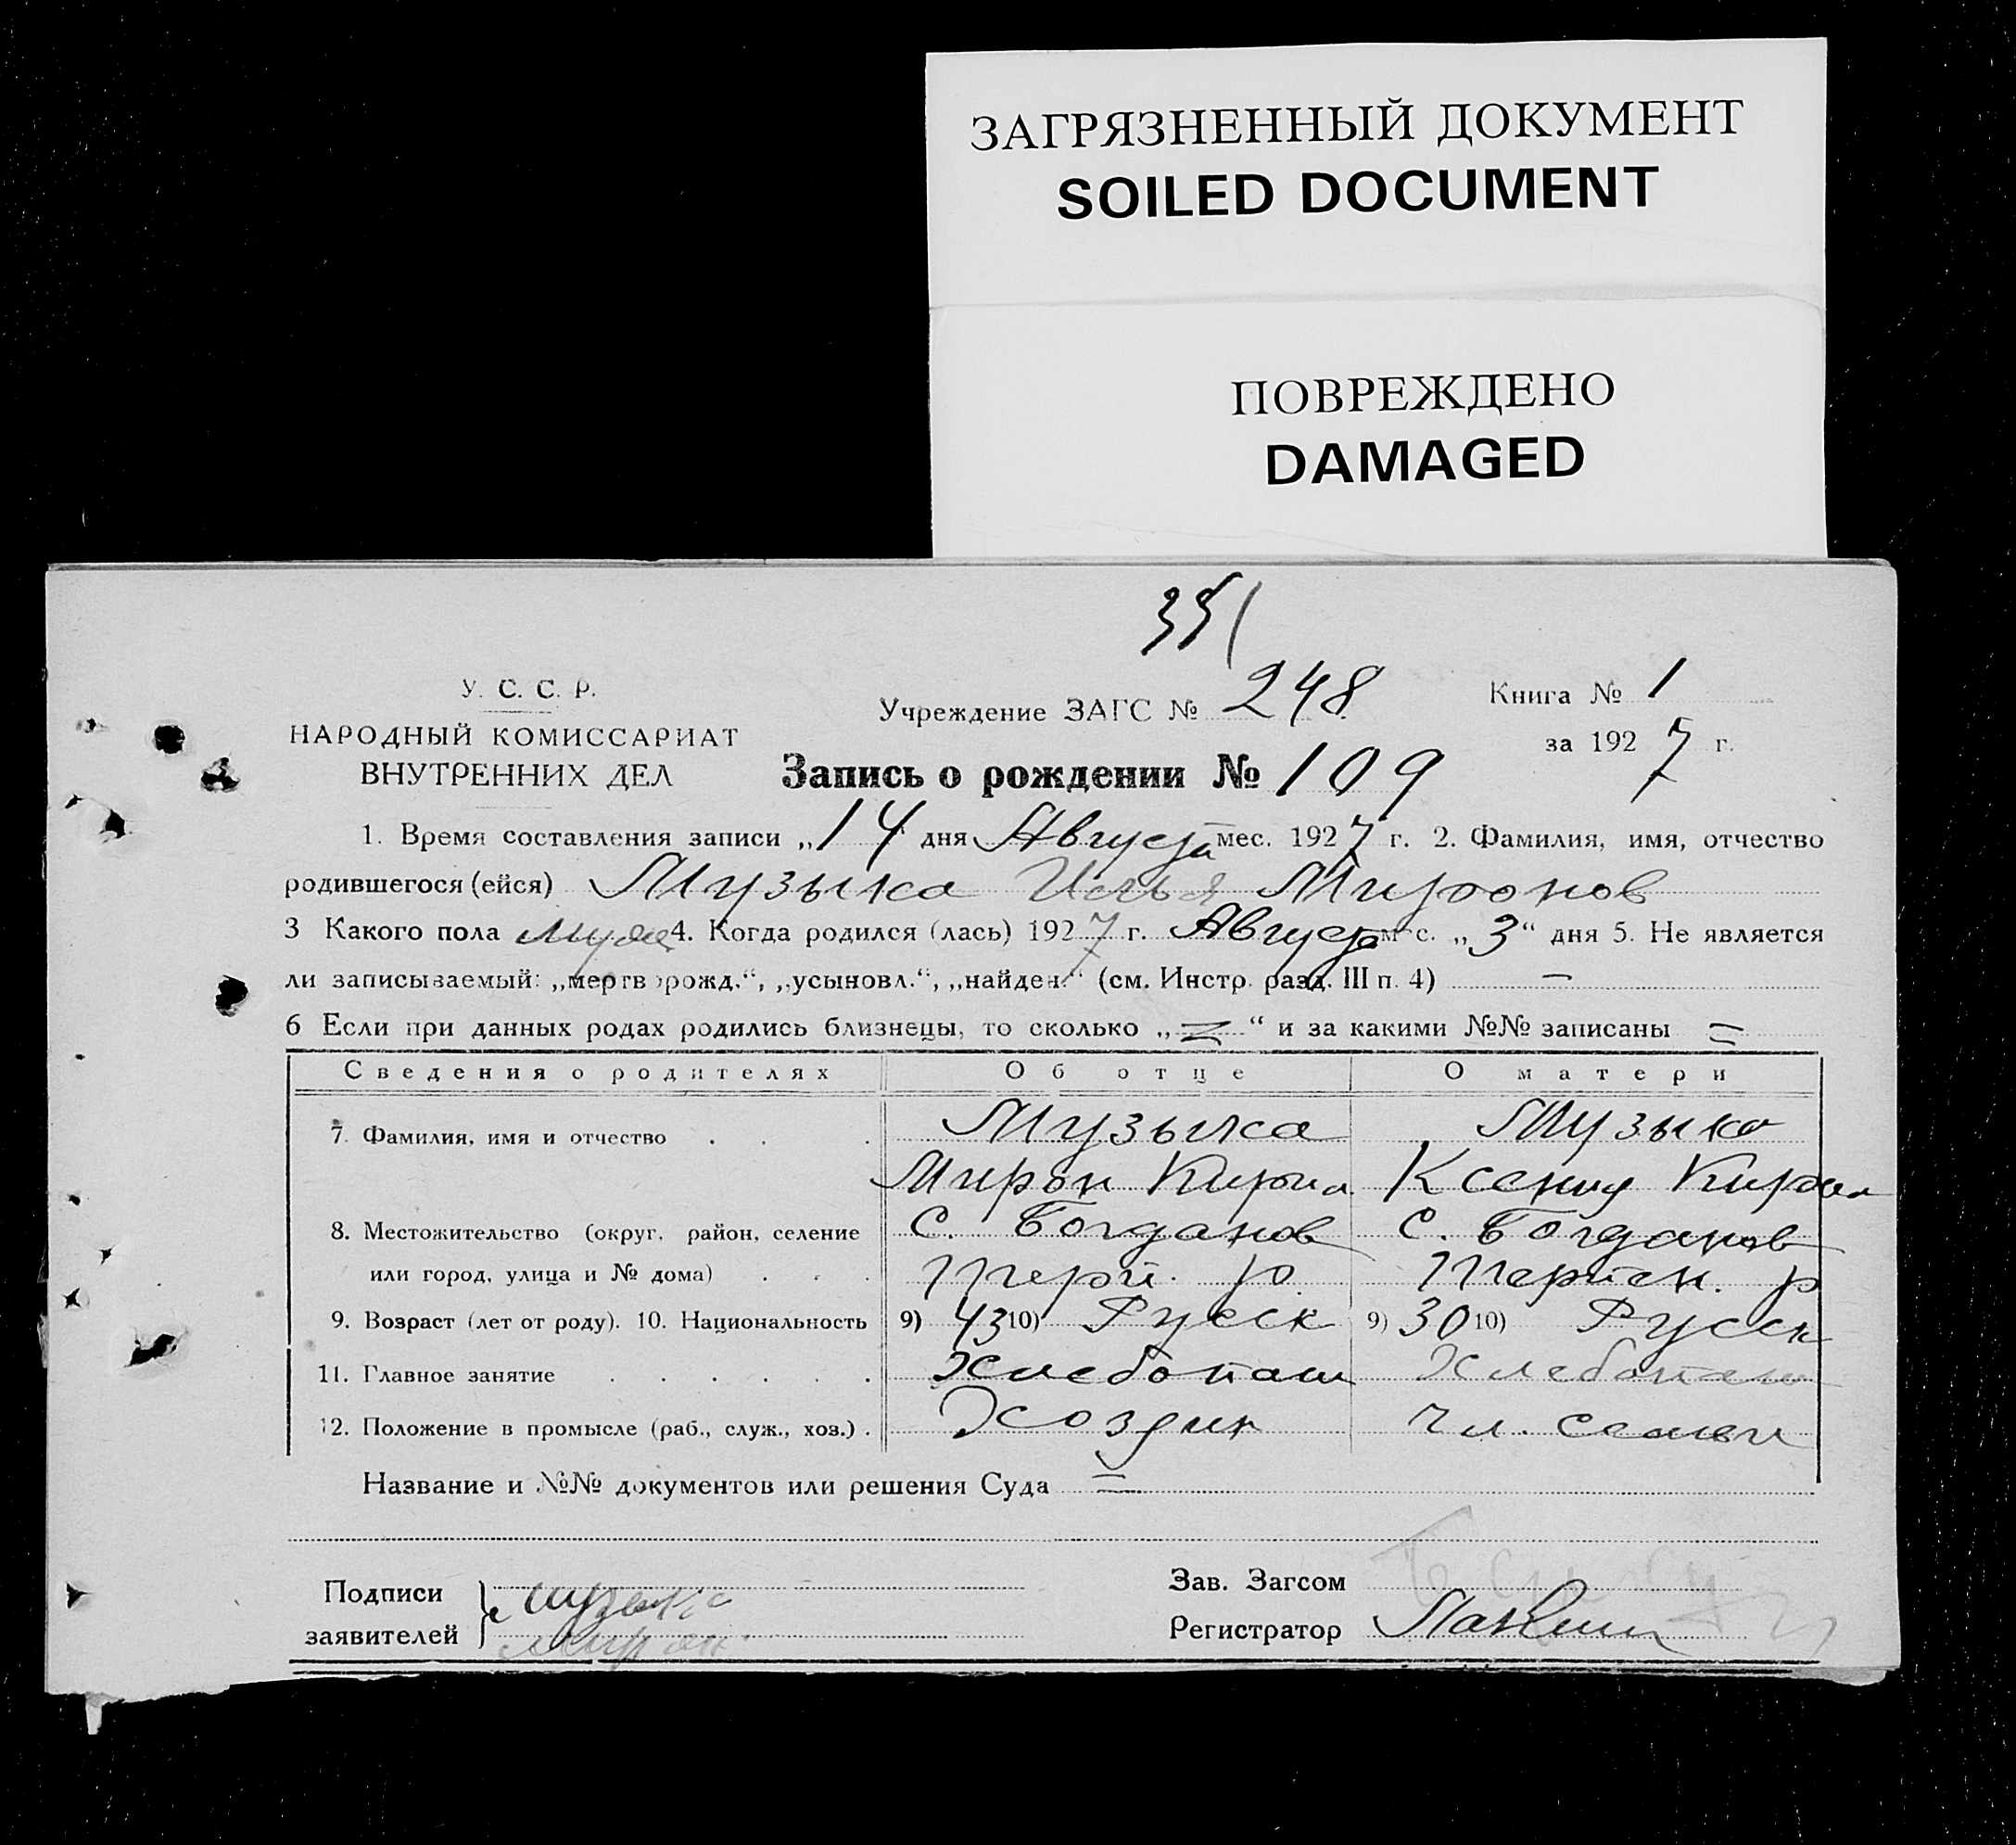 ЗАГРЯЗНЕННЫЙ ДОКУМЕНТ
SOILED DOCUMENT
ПОВРЕЖДЕНО
DAMAGED
351
У. С. С. Р.
НАРОДНЫЙ КОМИССАРИАТ
ВНУТРЕННИХ ДЕЛ
Учреждение ЗАГС № 248
Книга № 1
за 1927 г.
Запись о рождении № 109
1. Время составления записи „14 дня Августа мес. 1927 г. 2. Фамилия, имя, отчество
родившегося (ейся) Музыка Илья Миронов
3 Какого пола муж 4. Когда родился (лась) 1927 г. Августа м-с. „3“ дня 5. Не является
ли записываемый: „мертворожд.“, „усыновл.“, „найден.“ (см. Инстр. разд. III п. 4) —
6 Если при данных родах родились близнецы, то сколько „=“ и за какими №№ записаны =
Сведения о родителях Об отце О матери
7. Фамилия, имя и отчество Музыка Музыка
Мирон Кирил Ксения
8. Местожительство (округ, район, селение С. Богданов С. Богданов
или город, улица и № дома) Терп. р. Терпен. р
9. Возраст (лет от роду). 10. Национальность 9) 43 10) Русск 9) 30 10) Русск
11. Главное занятие Хлебопаш Хлебопаш
12. Положение в промысле (раб., служ., хоз.) Хозяин чл. семьи
Название и №№ документов или решения Суда =
Подписи
заявителей
Музыка
Мирон
Зав. Загсом
Регистратор